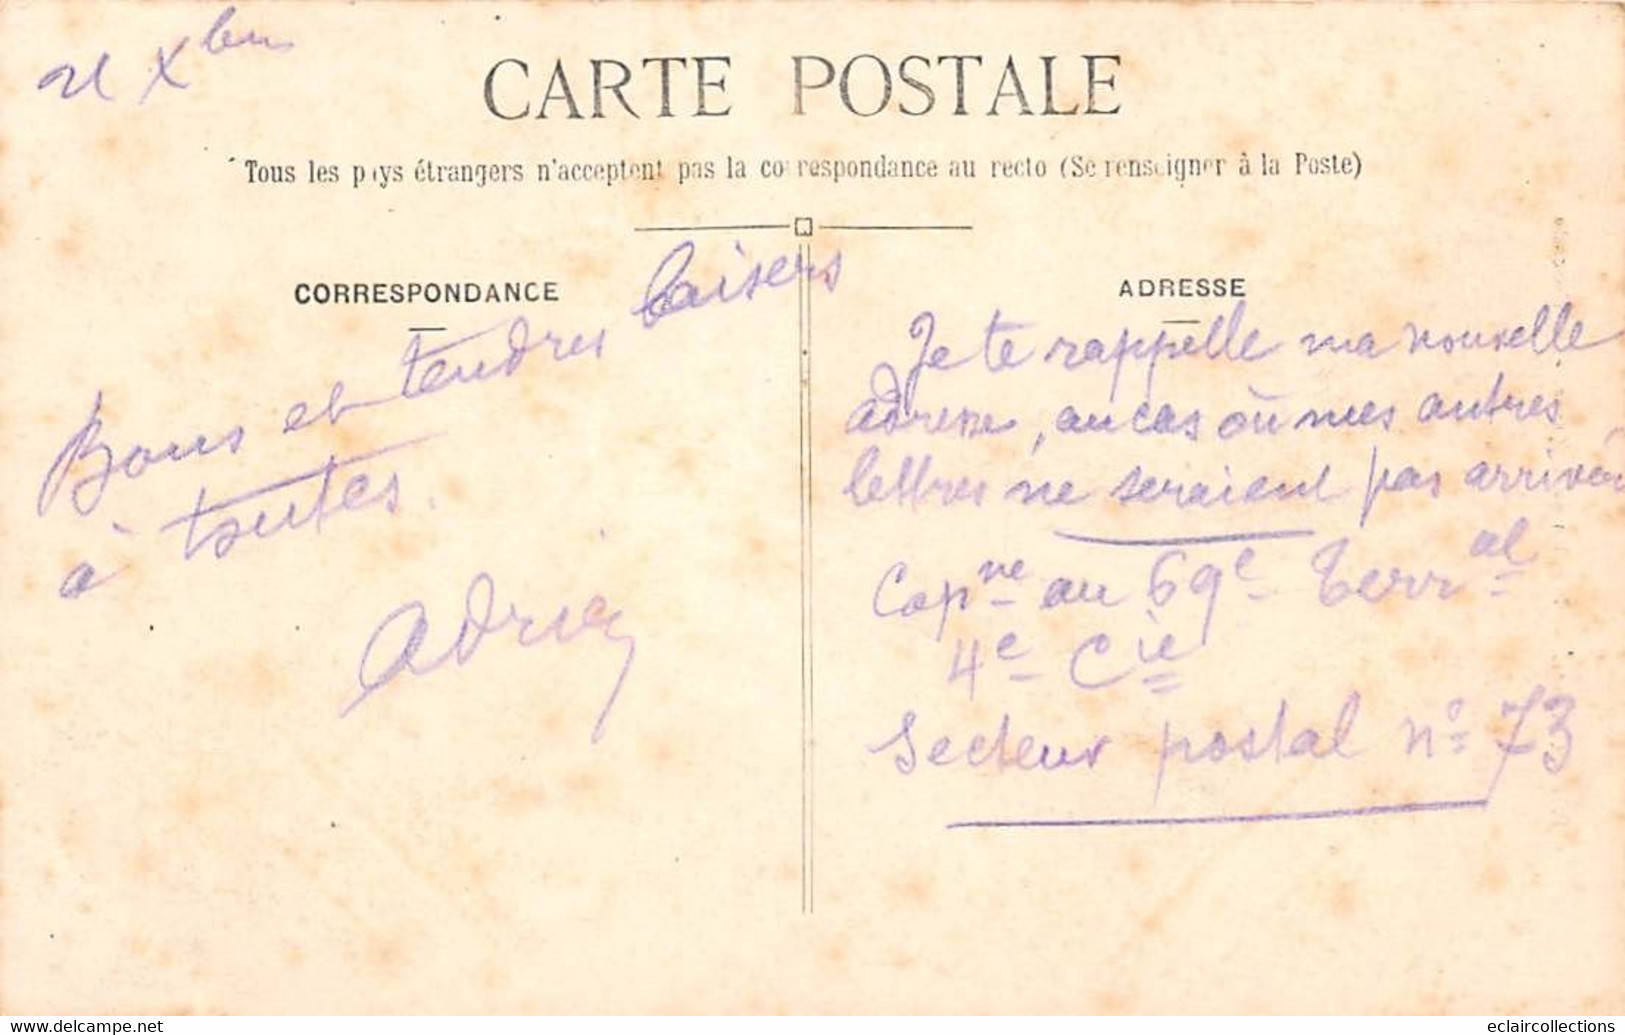 21 Xbre
CARTE POSTALE
Tous les pays étrangers n'acceptent pas la correspondance au recto (Se renseigner à la Poste)
CORRESPONDANCE
Bons et tendres baisers
à toutes.
Adrien
ADRESSE
Je te rappelle ma nouvelle
adresse, au cas où mes autres
lettres ne seraient pas arrivées
Capne au 69e Terral
4e Cie
Secteur postal n° 73
www.delcampe.net
eclaircollections